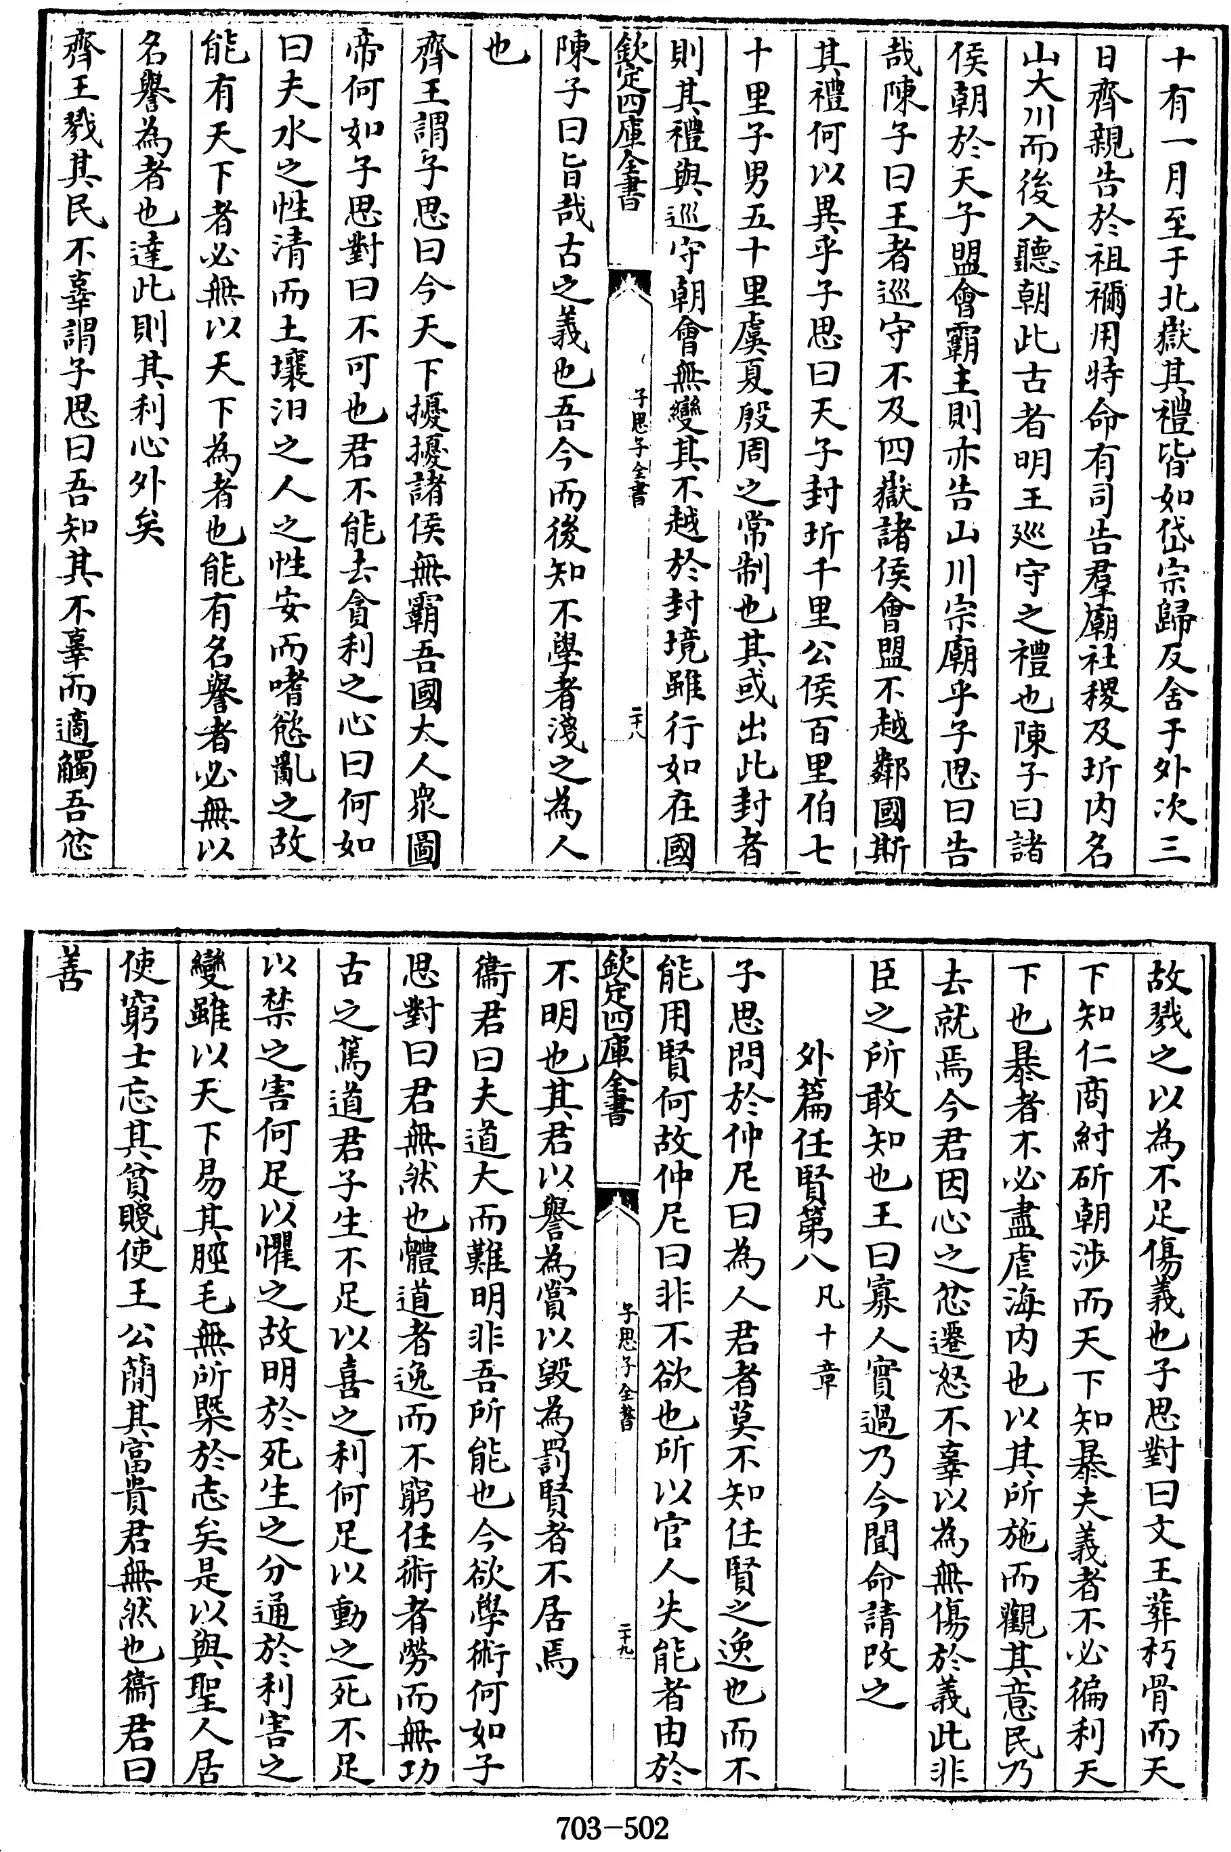 十有一月至于北嶽其禮皆如岱宗歸反舍于外次三
日齊親告於祖禰用特命有司告羣廟社稷及圻内名
山大川而後入聽朝此古者明王巡守之禮也陳子曰諸
侯朝於天子盟會霸主則亦告山川宗廟乎子思曰告
哉陳子曰王者巡守不及四嶽諸侯會盟不越鄰國斯
其禮何以異乎子思曰天子封圻千里公侯百里伯七
十里子男五十里虞夏殷周之常制也其或出此封者
則其禮與巡守朝會無變其不越於封境雖行如在國
欽定四庫全書
子思子全書
二十八
陳子曰旨哉古之義也吾今而後知不學者淺之為人
也
齊王謂子思曰今天下擾擾諸侯無霸吾國大人衆圖
帝何如子思對曰不可也君不能去貪利之心曰何如
曰夫水之性清而土壤汨之人之性安而嗜慾亂之故
能有天下者必無以天下為者也能有名譽者必無以
名譽為者也達此則其利心外矣
齊王戮其民不辜謂子思曰吾知其不辜而適觸吾忿
故戮之以為不足傷義也子思對曰文王葬朽骨而天
下知仁商紂斫朝涉而天下知暴夫義者不必徧利天
下也暴者不必盡虐海内也以其所施而觀其意民乃
去就焉今君因心之忿遷怒不辜以為無傷於義此非
臣之所敢知也王曰寡人實過乃今聞命請改之
外篇任賢第八 凡十章
子思問於仲尼曰為人君者莫不知任賢之逸也而不
能用賢何故仲尼曰非不欲也所以官人失能者由於
欽定四庫全書
子思子全書
二十九
不明也其君以譽為賞以毀為罰賢者不居焉
衞君曰夫道大而難明非吾所能也今欲學術何如子
思對曰君無然也體道者逸而不窮任術者勞而無功
古之篤道君子生不足以喜之利何足以動之死不足
以禁之害何足以懼之故明於死生之分通於利害之
變雖以天下易其脛毛無所槩於志矣是以與聖人居
使窮士忘其貧賤使王公簡其富貴君無然也衞君曰
善
703-502